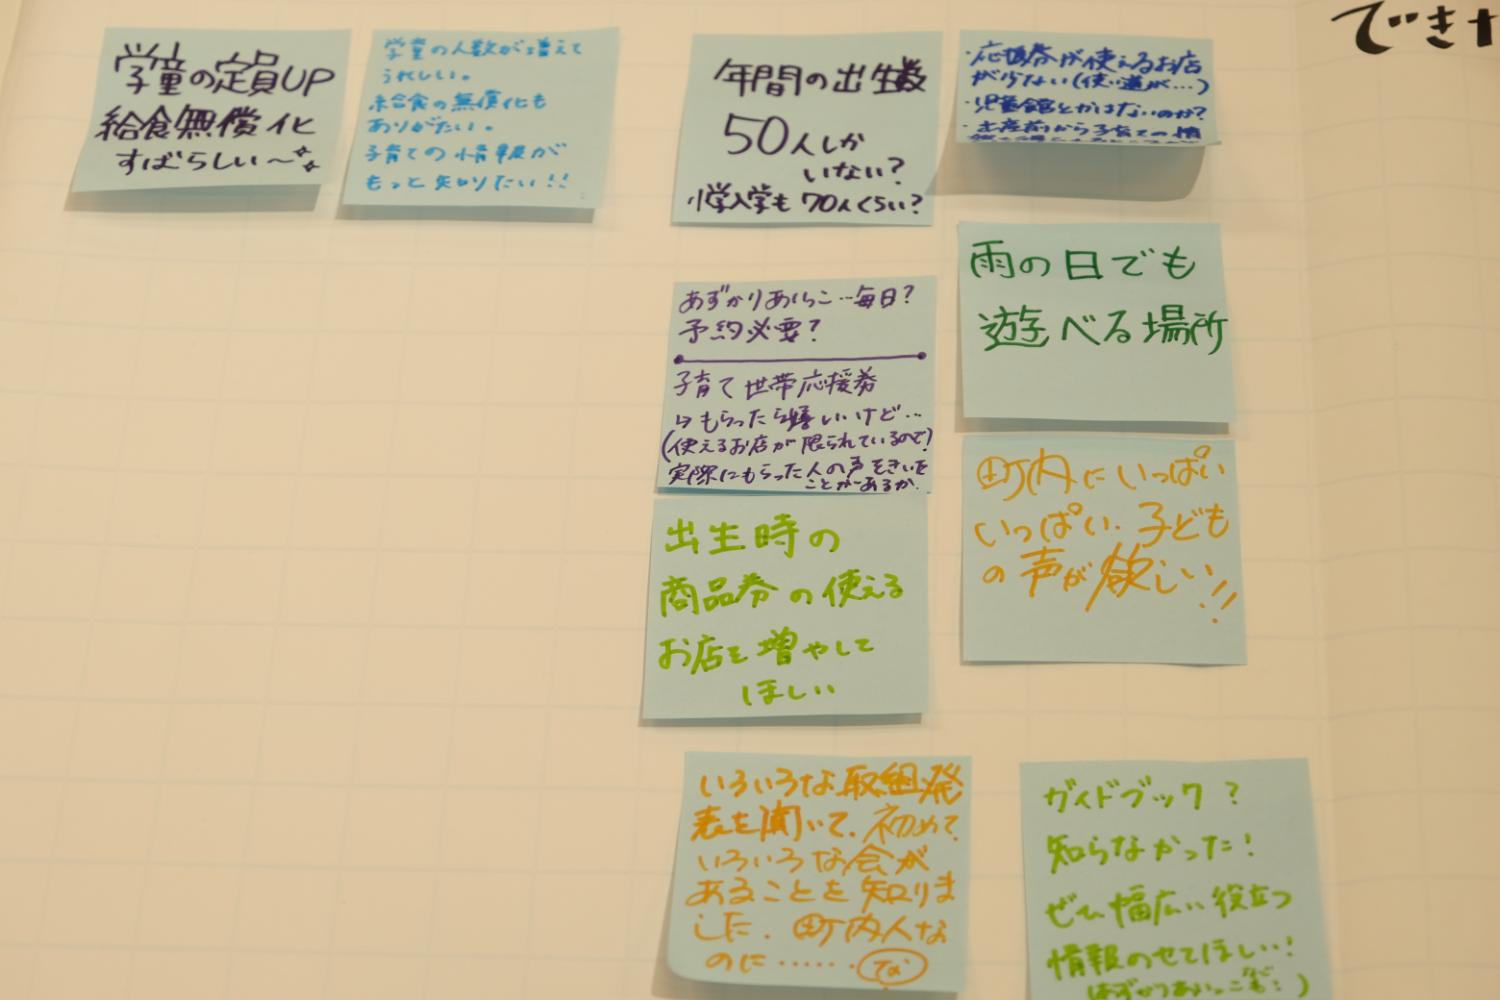 できた
学童の定員UP
給食無償化
すばらしい〜
学童の人数が増えて
うれしい。
給食の無償化も
ありがたい。
子育ての情報が
もっと知りたい!!
年間の出生数
50人しか
いない?
小学入学も70人くらい?
・応援券が使えるお店
が少ない(使い道が…)
・児童館とかはないのか?
・出産前から子育ての情
あずかりあいっこ…毎日?
予約必要?
子育て世帯応援券
↳もらったら嬉しいけど…
(使えるお店が限られているので)
実際にもらった人の声をきいた
ことがあるか。
雨の日でも
遊べる場所
出生時の
商品券の使える
お店を増やして
ほしい
町内にいっぱい
いっぱい、子ども
の声が欲しい!!
いろいろな取組発
表を聞いて、初めて
いろいろな会が
あることを知りま
した。町内人な
のに・・・・・・な
ガイドブック?
知らなかった!
ぜひ幅広い役立つ
情報のせてほしい!
(あずかりあいっこなども!)